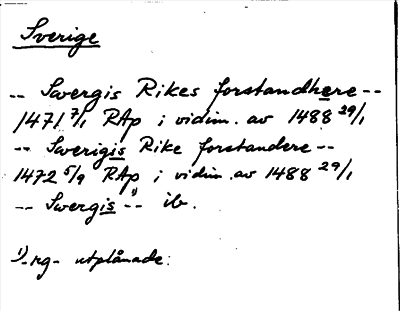 Sverige
-- Swergis Rikes forstandhere --
1471 7/1 RAp i vidim. av 1488 29/1
-- Swerigis Rike forstandere --
1472 5/9 RAp i vidim. av 1488 29/1
-- Swergis 1) -- ib.
1) -rg- utplånade.